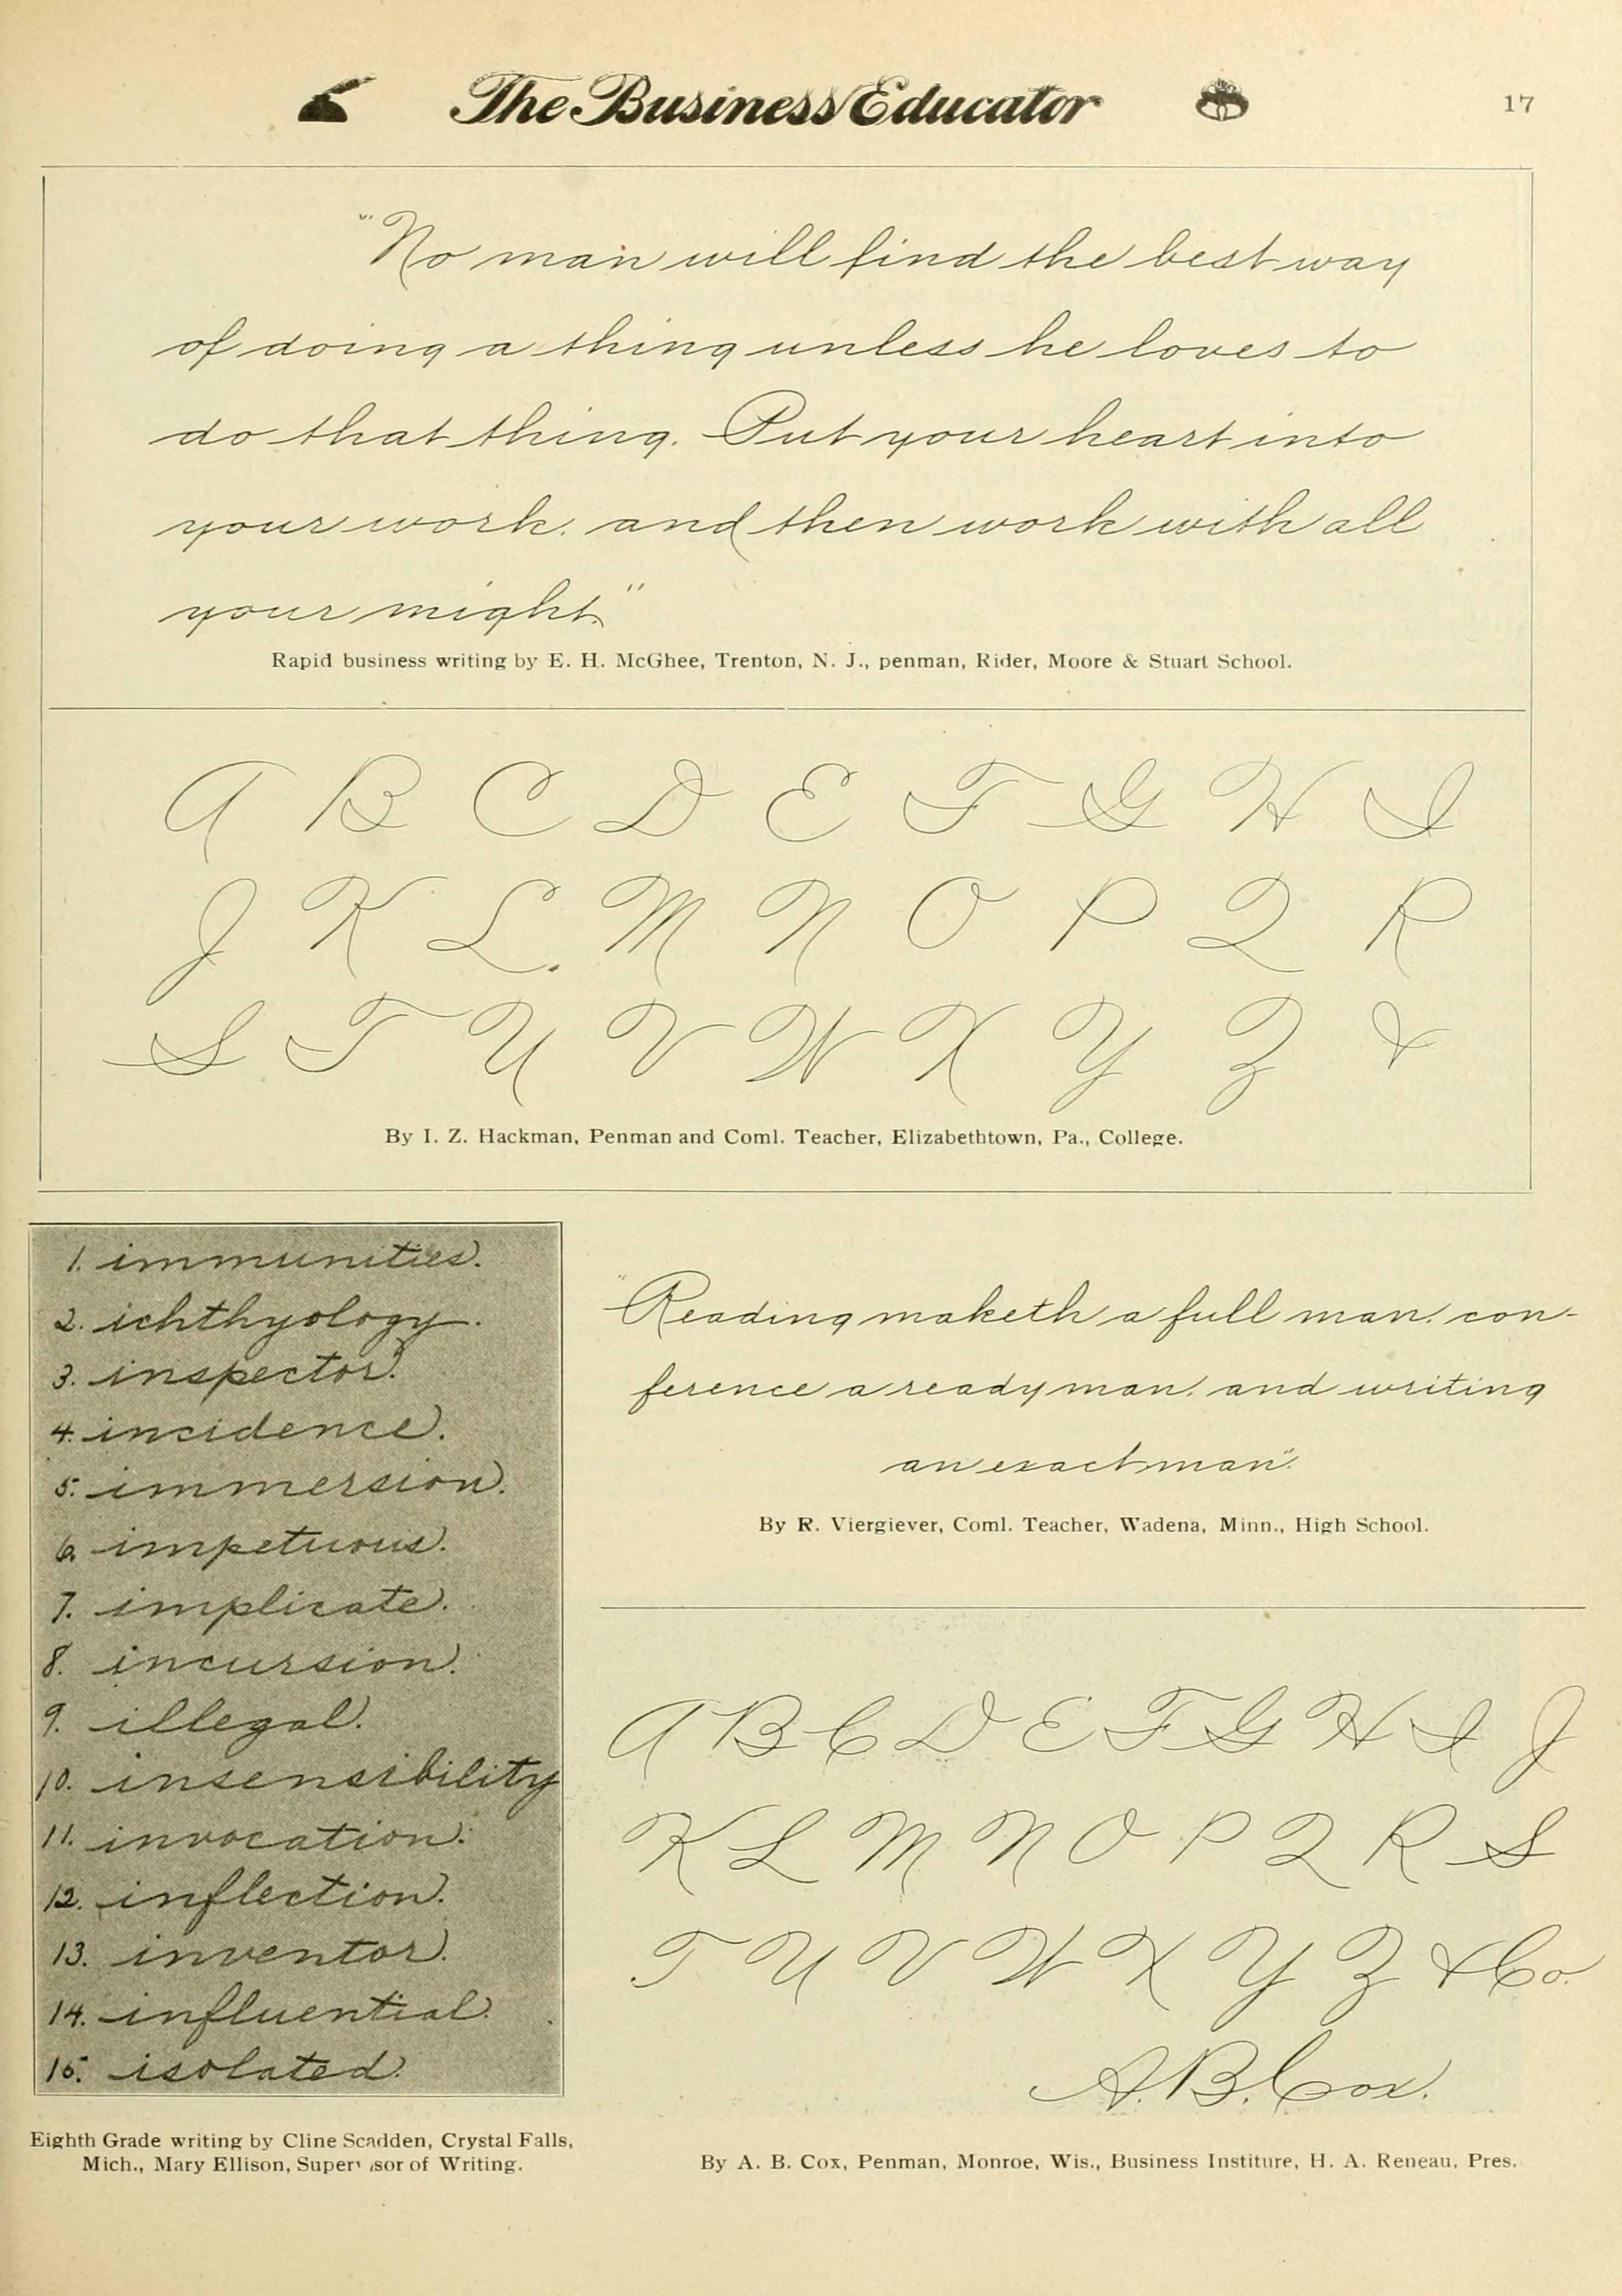 The Business Educator
17
"No man will find the best way
of doing a thing unless he loves to
do that thing. Put your heart into
your work, and then work with all
your might."
Rapid business writing by E. H. McGhee, Trenton, N. J., penman, Rider, Moore & Stuart School.
A B C D E F G H I
J K L. M N O P Q R
S T U V W X Y Z &
By I. Z. Hackman, Penman and Coml. Teacher, Elizabethtown, Pa., College.
1. immunities.
2. ichthyology.
3. inspector.
4. incidence.
5. immersion.
6. impetuous.
7. implicate.
8. incursion.
9. illegal.
10. insensibility
11. invocation.
12. inflection.
13. inventor.
14. influential.
15. isolated.
Eighth Grade writing by Cline Scadden, Crystal Falls,
Mich., Mary Ellison, Supervisor of Writing.
"Reading maketh a full man, con-
ference a ready man, and writing
an exact man".
By R. Viergiever, Coml. Teacher, Wadena, Minn., High School.
A B C D E F G H I J
K L M N O P Q R S
T U V W X Y Z & Co.
A. B. Cox.
By A. B. Cox, Penman, Monroe, Wis., Business Institure, H. A. Reneau, Pres.